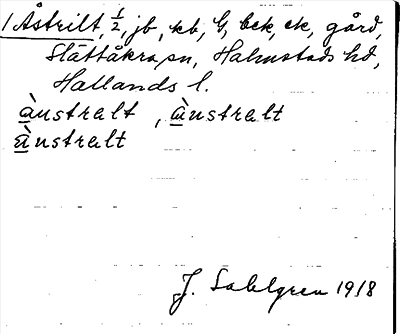 1 Åstrilt, ½, jb, kb, G, bck, ek, gård,
Slättåkra sn, Halmstads hd,
Hallands l.
ànstralt, ànstralt
ànstralt
J. Sahlgren 1918